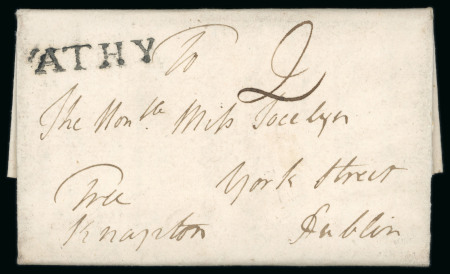 ATHY
To
2
The Hon.ble Miss Jocelyn
York Street
Free
Knapton
Dublin